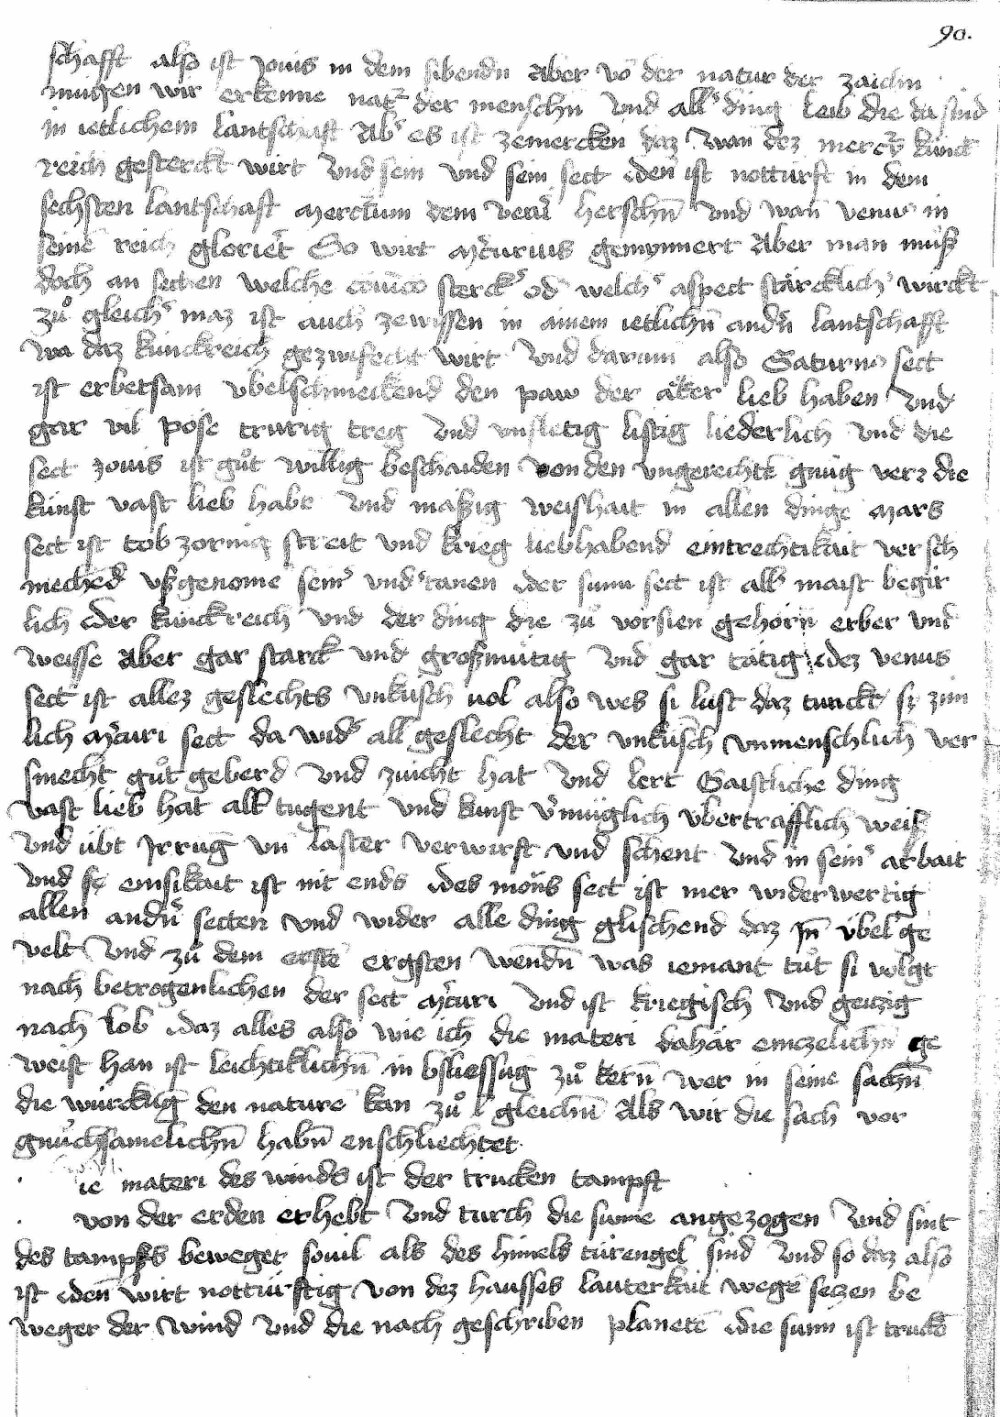 90.
schafft also ist Jovis in dem sibendn Aber vō der natur der zaichn
mugen wir erkenne nat̓ der menschn Und all̓ ding leib die da sind
in ietlichem lantschaft Ab̓ es ist zemercken daz wan dez merc̓y kunck
reich gesterckt wirt Und sein und sein sect den ist notturft in dem
sechsten lantschaft Mercium dem herschn̄ Und wan̄ venus in
seine reich glorier̓t So wirt Mc̓urius gemynnert Aber man muͦß
doch an sechen welche sterck̓ od̓ welch̓ aspect stärcklich̓ wirckt
zuͦ gleich̓ maz ist auch zewissen in ainem ietlichn̄ andn̓ lantschafft
wa daz kunckreich gezwifecht wirt Und darum also Saturno sect
ist erbetsam ubelschmeckend den paw der äker lieb haben Und
gar vil pose trurig treg Und unfletig listig liederlich Und die
sect Jovis ist guͦt willig beschaiden Von den ungerechtē gnug die
kunst vast lieb habt Und massig weishait in allen dinge Mars
sect ist tob zornig streit und krieg liebhabend eintrechtikait versch
meched ußgenome sein̓ und̓tanen der sunn sect ist all̓ maist begir
lich der kunckreich Und der ding die zuͦ gehorn erber und
weisse Aber gar starck und großmutig Und gar tätig dez venus
sect ist allez geslechts unkusch vol also wes si lust daz tunckt zim
lich Mc̓uri sect da wid̓ all geslecht der unkusch unmenschlich ver
smecht guͦt geberd Und zuicht hat Und lert Gaistliche ding
vast lieb hat all̓ tugent und kunst v̓muglich ubertrafflich weiß
Und übt Irrug un̄ laster verwirft und schent Und in sein̓ arbait
Und emsikait ist nit ends des mons sect ist mer widerwertig
allen andn̓ secten Und wider alle ding glischend daz Jn̄ ubel ge
velt Und zuͦ dem erstē ergsten wendn̄ was iemant tuͦt si volgt
nach betrogenlichen der sect Mc̓uri Und ist kriegisch Und geitzig
nach lob daz alles also wie ich die materi dahär einczelichn ge
weist han ist leichtiklichn̄ in bsliessug zuͦ kern̄ wer in seine sachn̄
die wurckug den nature kan zuͦ gleichn̄ Als wir die sach vor
gnuͦchsamelichn̄ habn̄ enschliechtet
ie materi des winds ist der trucken tampft
von der erden erhebt Und turch die sunne angezogen Und sint
des tampfs beweget sovil als des himels türengel sind Und so daz also
ist den̄ wirt notturftig von dez hausses lauterkait wegē seczen be
weger der wind Und die nach geschriben planetē die sunn ist truckē